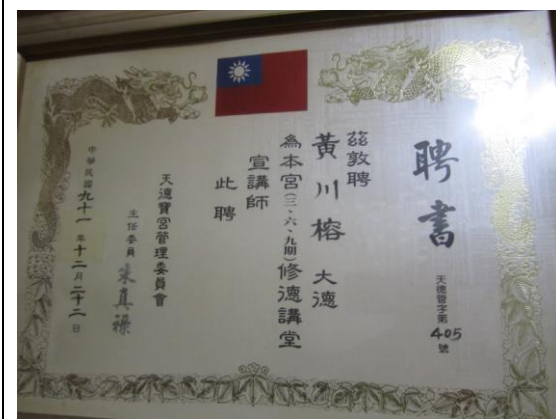 聘書
天德管字第405號
茲敦聘
黃川榕 大德
為本宮(三、六、九期)修德講堂
宣講師
此聘
天德寶宮管理委員會
主任委員 朱真祿
中華民國九十一年十二月二十二日